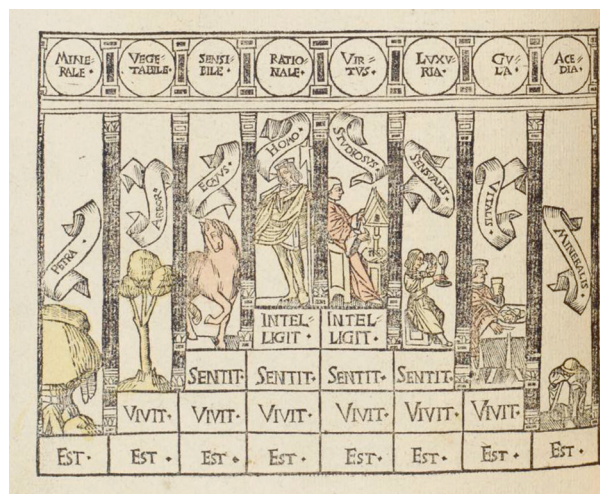 MINE=
RALE·
VEGE=
TABILE·
SENSI=
BILE·
RATIO=
NALE·
VIR=
TVS·
LVXV=
RIA·
GV=
LA·
ACE=
DIA·
PETRA·
ARBOR·
EQVVS·
HOMO·
STVDIOSVS
SENSVALIS·
VITALIS·
MINERALIS·
INTEL=
LIGIT·
INTEL=
LIGIT·
SENTIT· SENTIT· SENTIT· SENTIT·
VIVIT· VIVIT· VIVIT· VIVIT· VIVIT· VIVIT·
EST· EST· EST· EST· EST· EST· EST· EST·